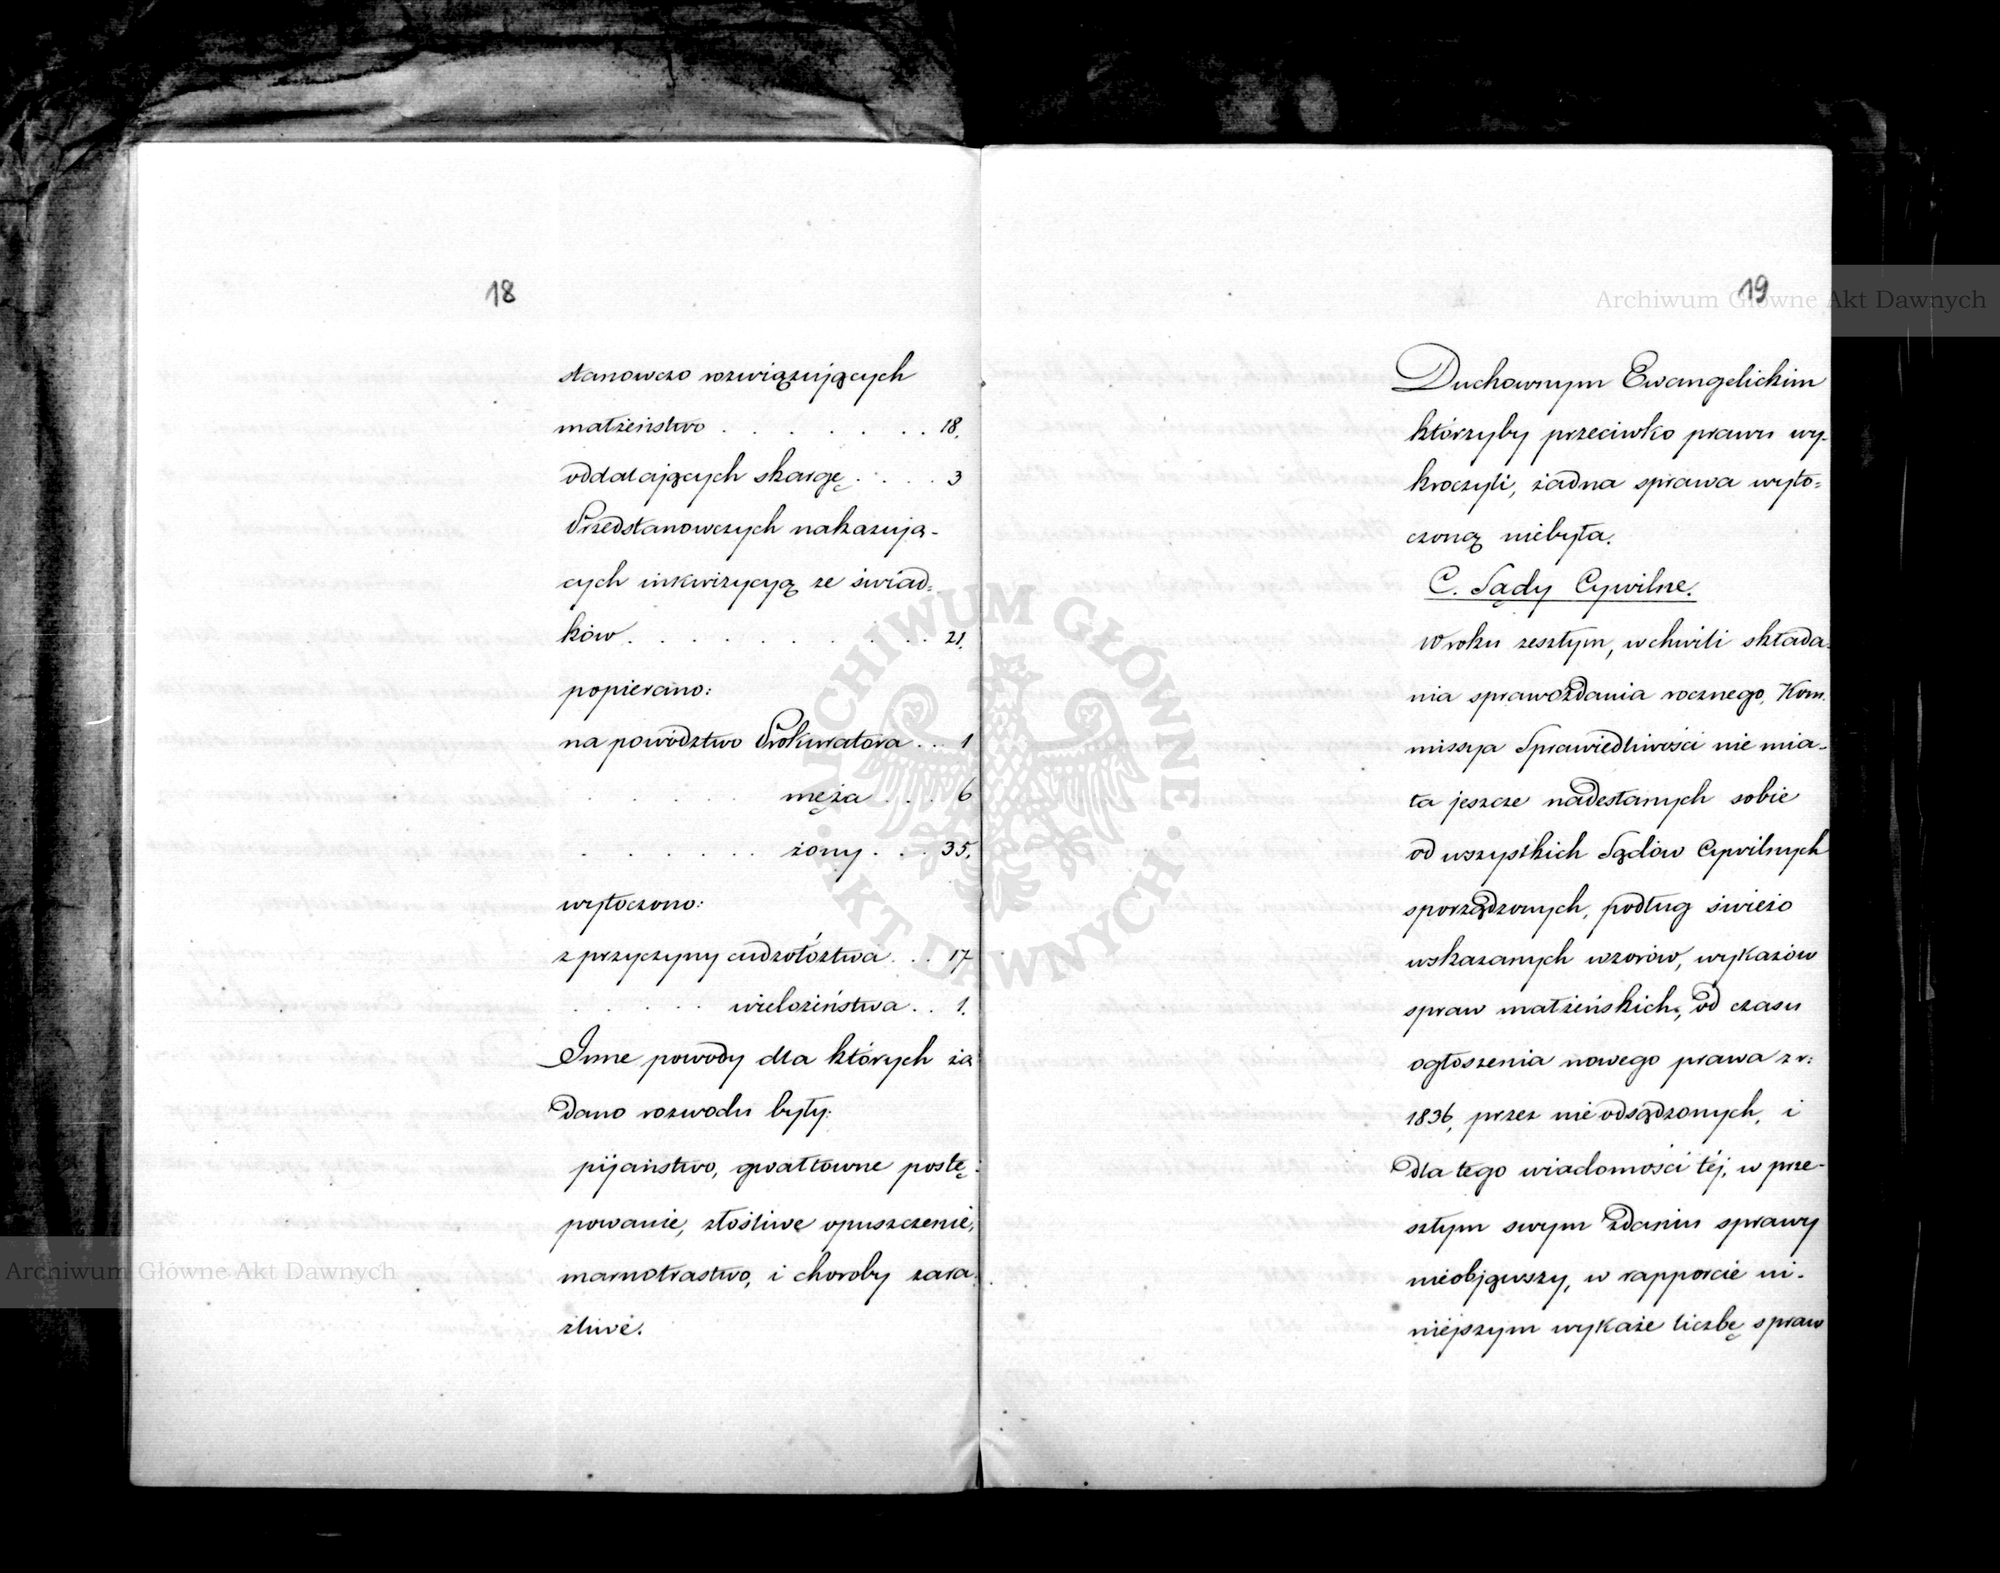 18
stanowczo rozwiązujących
małżeństwo . . . . . . . . 18.
oddalających skargę . . . . 3
Przedstanowczych nakazują-
cych inkwizycyą ze świad-
ków . . . . . . . . . . . 21.
popierano:
na powództwo Prokuratora . . 1
. . . . . męża . . . 6
. . . . . . żony . . . 35.
wytoczono:
z przyczyny cudzołóztwa . . . 17
. . . . . wielożeństwa . . 1.
Inne powody dla których żą
dano rozwodu były:
pijaństwo, gwałtowne postę-
powanie, złośliwe opuszczenie,
marnotrastwo, i choroby zara-
źliwe.
19
Duchownym Ewangelickim
którzyby przeciwko prawu wy-
kroczyli, żadna sprawa wyto=
czoną niebyła.
C. Sądy Cywilne.
W roku zeszłym, w chwili składa-
nia sprawozdania rocznego, Kom-
missya Sprawiedliwości nie mia-
ła jeszcze nadesłanych sobie
od wszystkich Sądów Cywilnych
sporządzonych, podług świeżo
wskazanych wzorów, wykazów
spraw małżeńskich, od czasu
ogłoszenia nowego prawa z r:
1836, przez nie odsądzonych, i
dla tego wiadomości téj, w prze-
szłym swym zdaniu sprawy
nieobjąwszy, w rapporcie ni-
niejszym wykaże liczbę spraw
Archiwum Główne Akt Dawnych
Archiwum Główne Akt Dawnych
ARCHIWUM GŁÓWNE
· AKT DAWNYCH ·